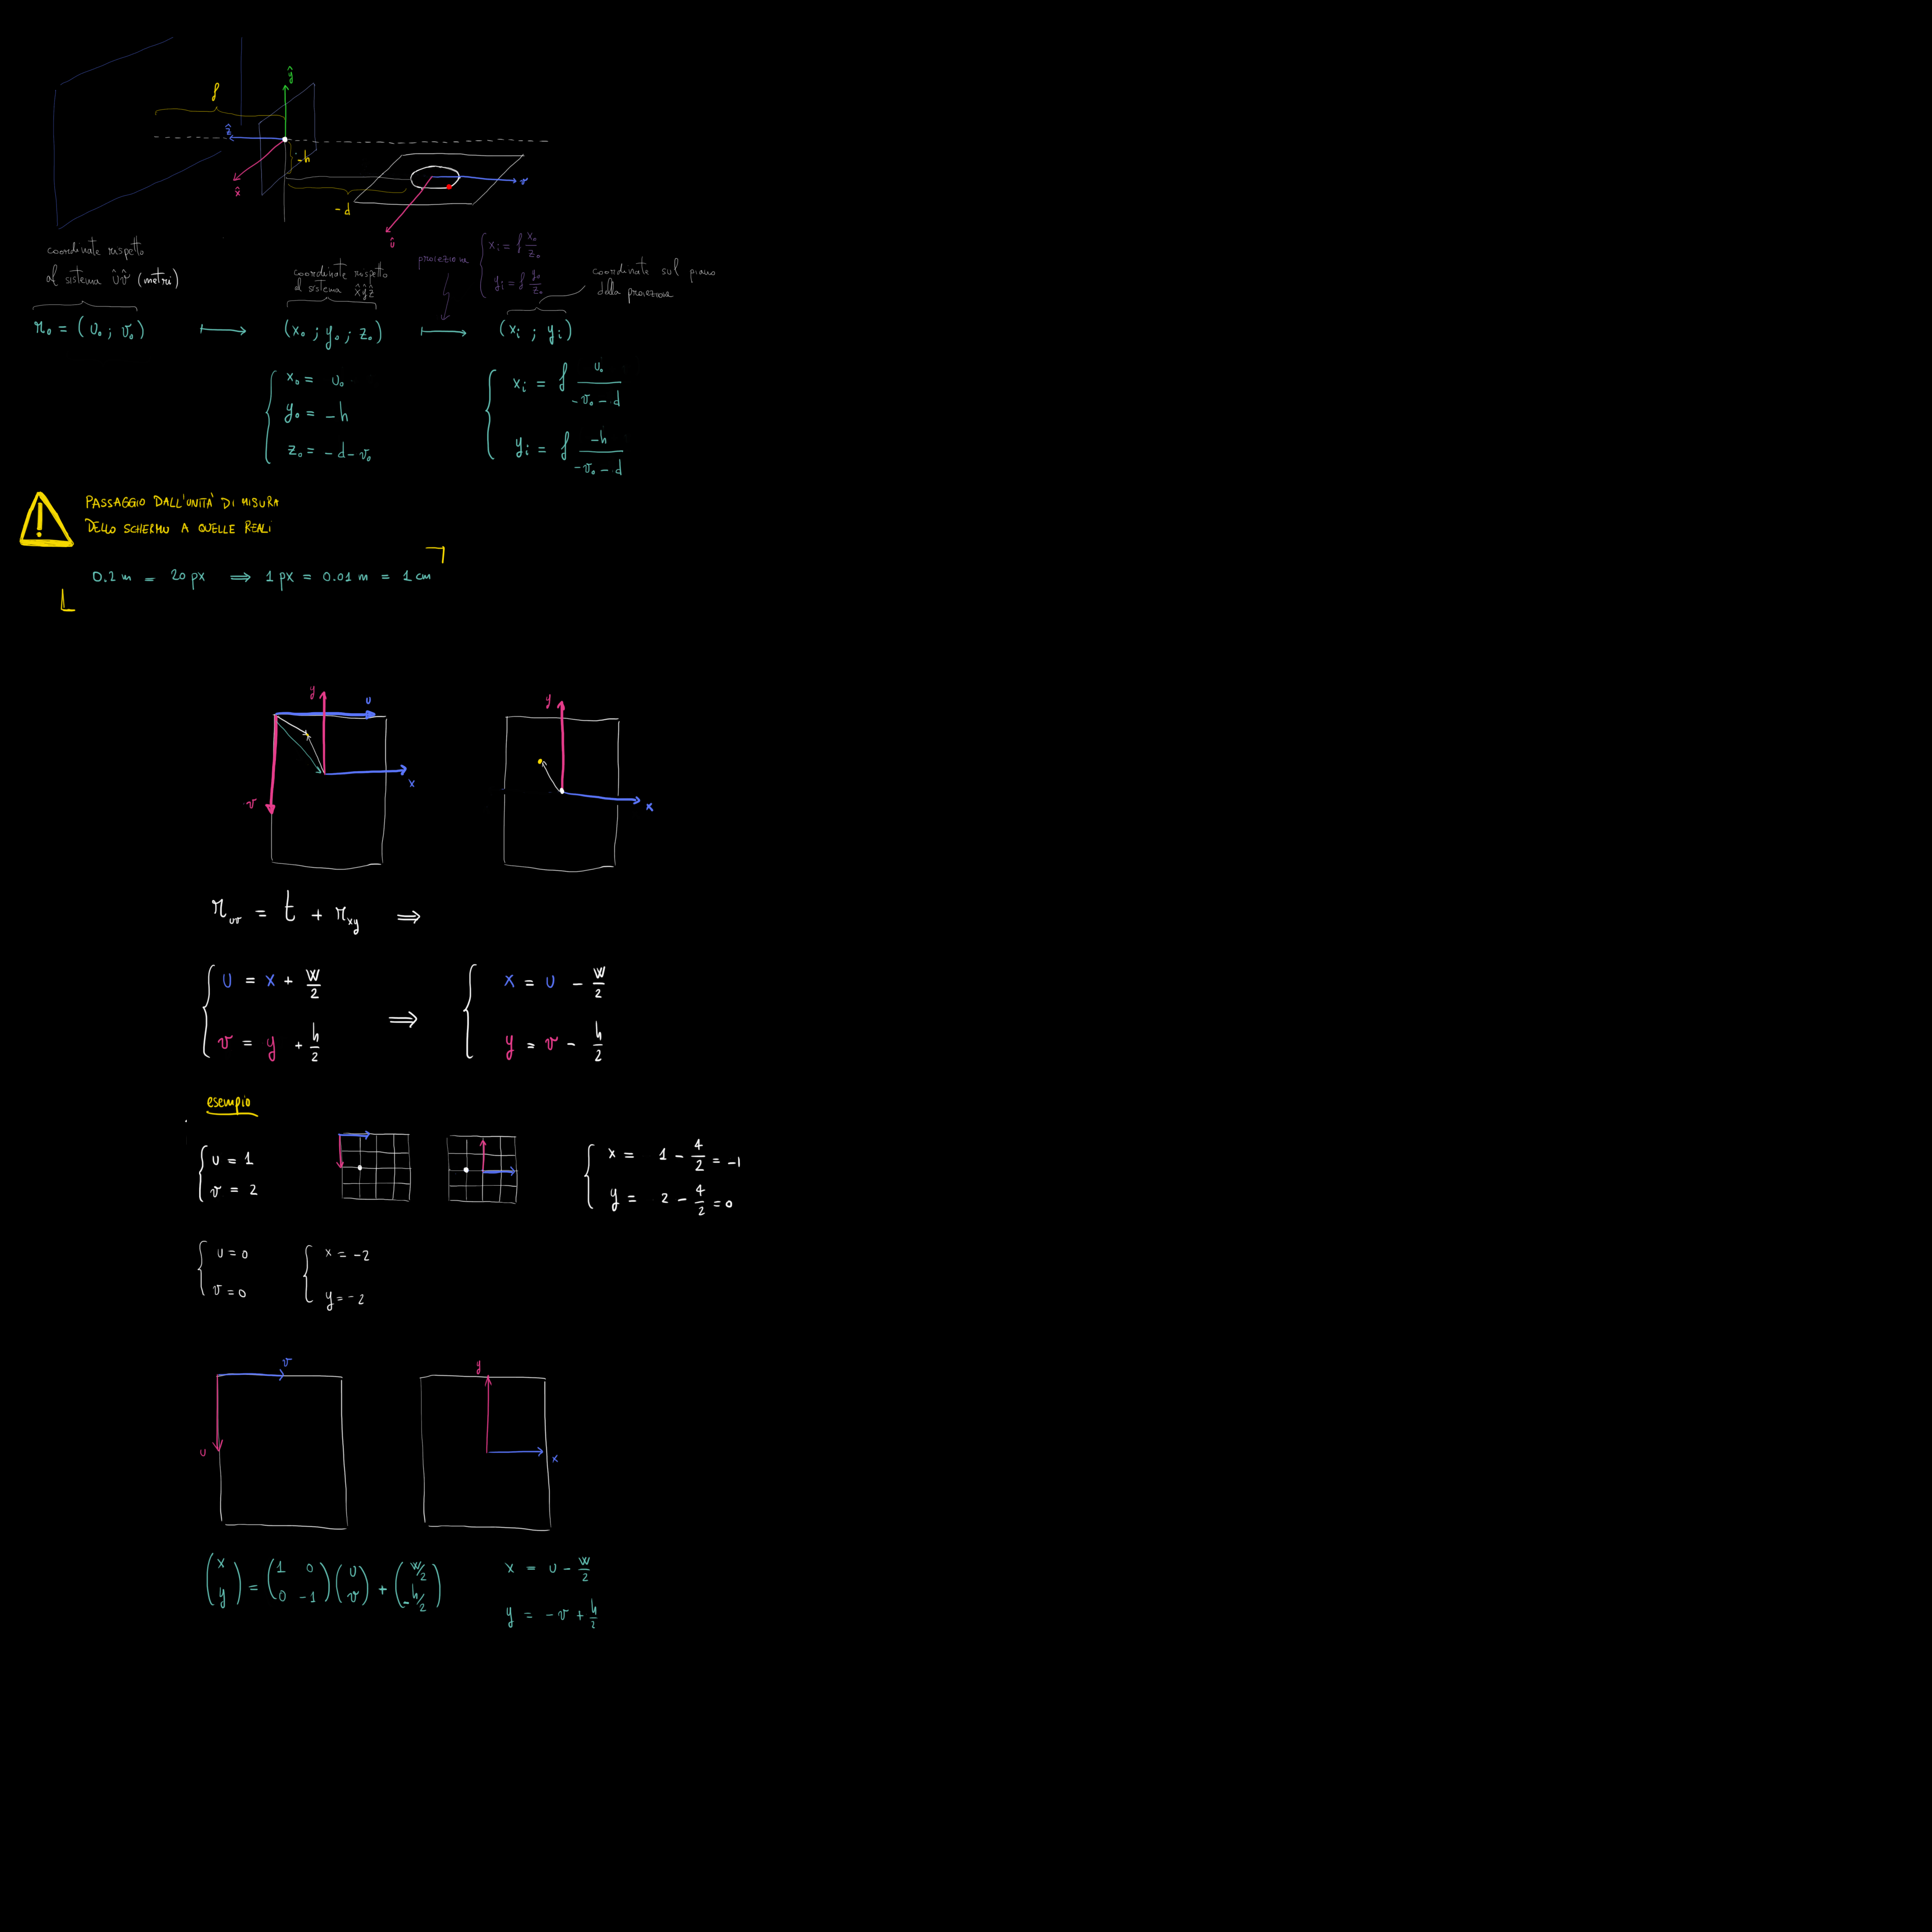 f
ŷ
ẑ
-h
x̂
-d
v
û
coordinate rispetto
al sistema ûv̂ (metri)
coordinate rispetto
al sistema x̂ŷẑ
proiezione
xi = f x₀/z₀
yi = f y₀/z₀
coordinate sul piano
della proiezione
r₀ = (u₀; v₀) ⟼ (x₀; y₀; z₀) ⟼ (xi; yi)
x₀ = u₀
y₀ = -h
z₀ = -d-v₀
xi = f u₀/(-v₀-d)
yi = f -h/(-v₀-d)
!
PASSAGGIO DALL'UNITÀ DI MISURA
DELLO SCHERMO A QUELLE REALI
0.2 m = 20 px ⟹ 1 px = 0.01 m = 1 cm
y
u
x
v
y
x
r_uv = t + r_xy ⟹
u = x + w/2
v = y + h/2
⟹
x = u - w/2
y = v - h/2
esempio
u = 1
v = 2
x = 1 - 4/2 = -1
y = 2 - 4/2 = 0
u = 0
v = 0
x = -2
y = -2
v
u
y
x
(x y) = (1 0 0 -1)(u v) + (w/2 -h/2)
x = u - w/2
y = -v + h/2